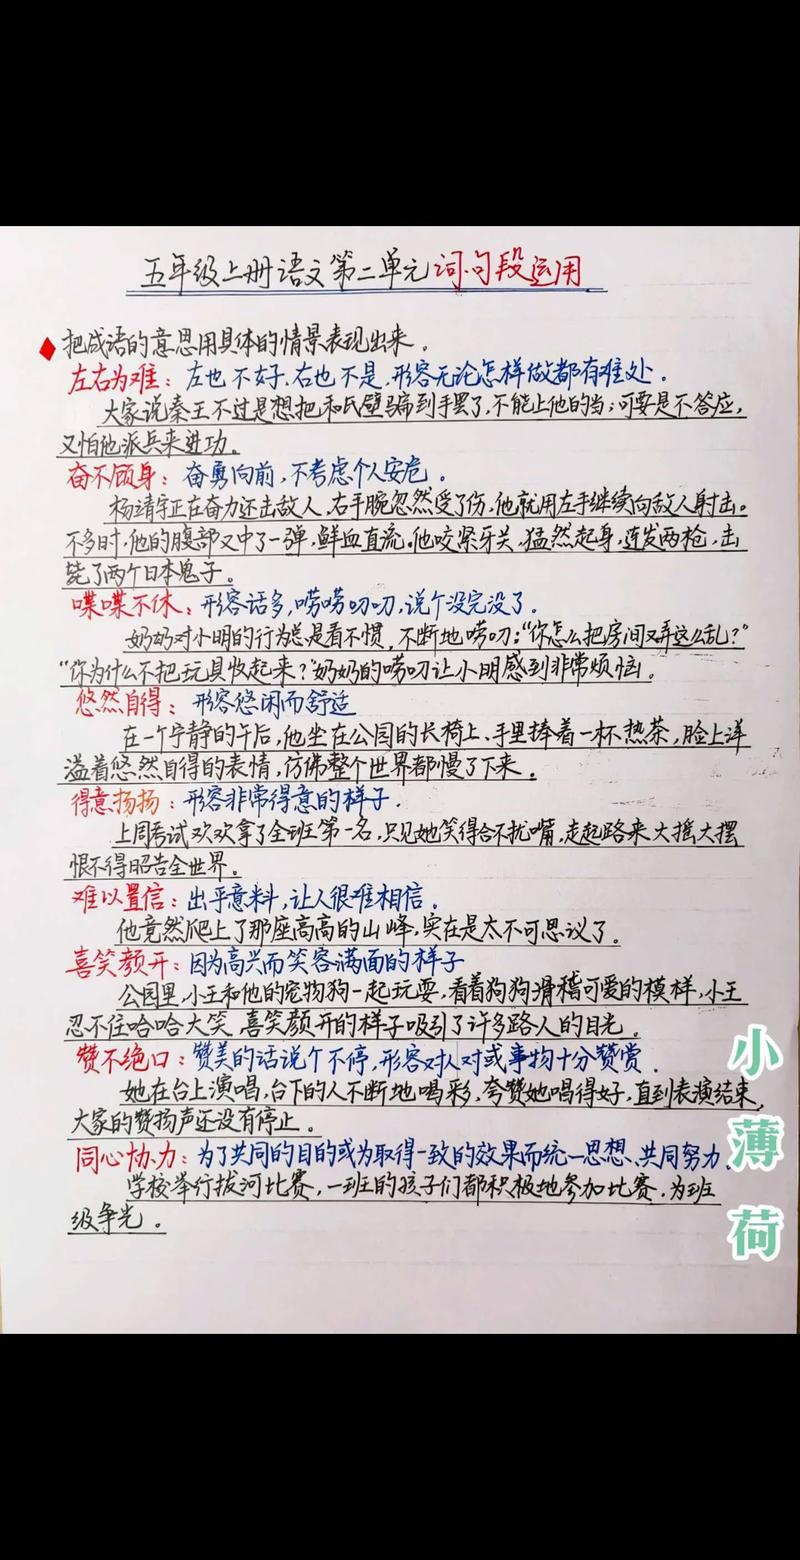 五年级上册语文第二单元词句段运用
把成语的意思用具体的情景表现出来。
左右为难：左也不好、右也不是，形容无论怎样做都有难处。
大家说秦王不过是想把和氏璧骗到手罢了，不能上他的当；可要是不答应，
又怕他派兵来进功。
奋不顾身：奋勇向前，不考虑个人安危。
杨靖宇正在奋力还击敌人，右手腕忽然受了伤，他就用左手继续向敌人射击。
不多时，他的腹部又中了一弹，鲜血直流，他咬紧牙关，猛然起身，连发两枪，击
毙了两个日本鬼子。
喋喋不休：形容话多，唠唠叨叨，说个没完没了。
奶奶对小明的行为总是看不惯，不断地唠叨：“你怎么把房间又弄这么乱？”
“你为什么不把玩具收起来？”奶奶的唠叨让小明感到非常烦恼。
悠然自得：形容悠闲而舒适
在一个宁静的午后，他坐在公园的长椅上、手里捧着一杯热茶，脸上洋
溢着悠然自得的表情，仿佛整个世界都慢了下来。
得意扬扬：形容非常得意的样子.
上周考试欢欢拿了全班第一名，只见她笑得合不拢嘴，走起路来大摇大摆
恨不得昭告全世界。
难以置信：出乎意料，让人很难相信。
他竟然爬上了那座高高的山峰，实在是太不可思议了。
喜笑颜开：因为高兴而笑容满面的样子
公园里，小王和他的宠物狗一起玩耍，看着狗狗滑稽可爱的模样，小王
忍不住哈哈大笑，喜笑颜开的样子吸引了许多路人的目光。
赞不绝口：赞美的话说个不停，形容对人对或事物十分赞赏.
她在台上演唱，台下的人不断地喝彩，夸赞她唱得好，直到表演结束，
大家的赞扬声还没有停止。
同心协力：为了共同的目的或为取得一致的效果而统一思想、共同努力.
学校举行拔河比赛，一班的孩子们都积极地参加比赛，为班
级争光。
小薄荷